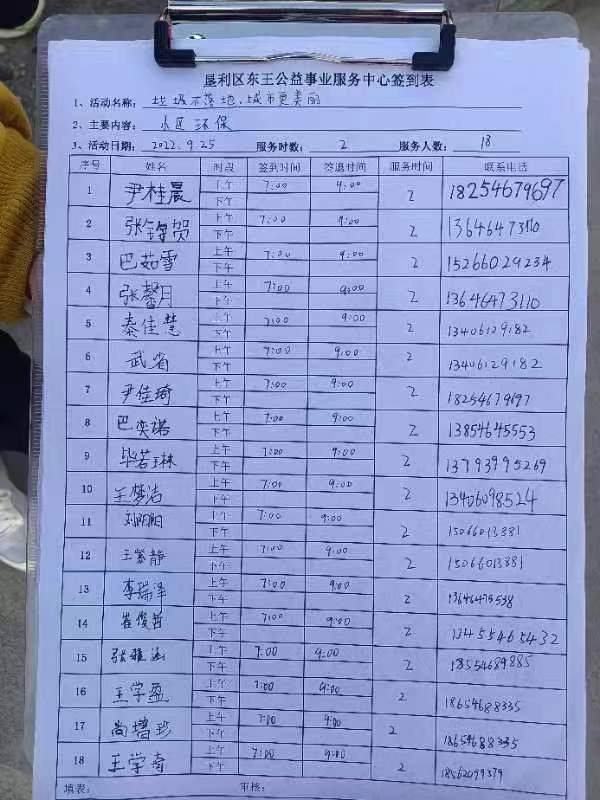 垦利区东王公益事业服务中心签到表
1、活动名称：垃圾不落地，城市更美丽
2、主要内容：小区环保
3、活动日期：2022.9.25 服务时数：2 服务人数：18
序号 姓名 时段 签到时间 签退时间 服务时间 联系电话
1 尹桂晨 上午 7:00 9:00 2 18254679697
下午
2 张锦贺 上午 7:00 9:00 2 13646473110
下午
3 巴茹雪 上午 7:00 9:00 2 15266029234
下午
4 张馨月 上午 7:00 9:00 2 13646473110
下午
5 秦佳慧 上午 7:00 9:00 2 13406129182
下午
6 武省 上午 7:00 9:00 2 13406129182
下午
7 尹佳琦 上午 7:00 9:00 2 18254679697
下午
8 巴奕诺 上午 7:00 9:00 2 13854645553
下午
9 毕若琳 上午 7:00 9:00 2 13793995269
下午
10 王梦洁 上午 7:00 9:00 2 13406098524
下午
11 刘明阳 上午 7:00 9:00 2 15066013881
下午
12 王紫静 上午 7:00 9:00 2 15066013881
下午
13 李瑞泽 上午 7:00 9:00 2
下午
14 崔俊哲 上午 7:00 9:00 2 13455465432
下午
15 张雅涵 上午 7:00 9:00 2 18554689885
下午
16 王学盈 上午 7:00 9:00 2 18654688335
下午
17 尚增珍 上午 7:00 9:00 2 18654688335
下午
18 王学奇 上午 7:00 9:00 2 18562099379
下午
填表： 审核：